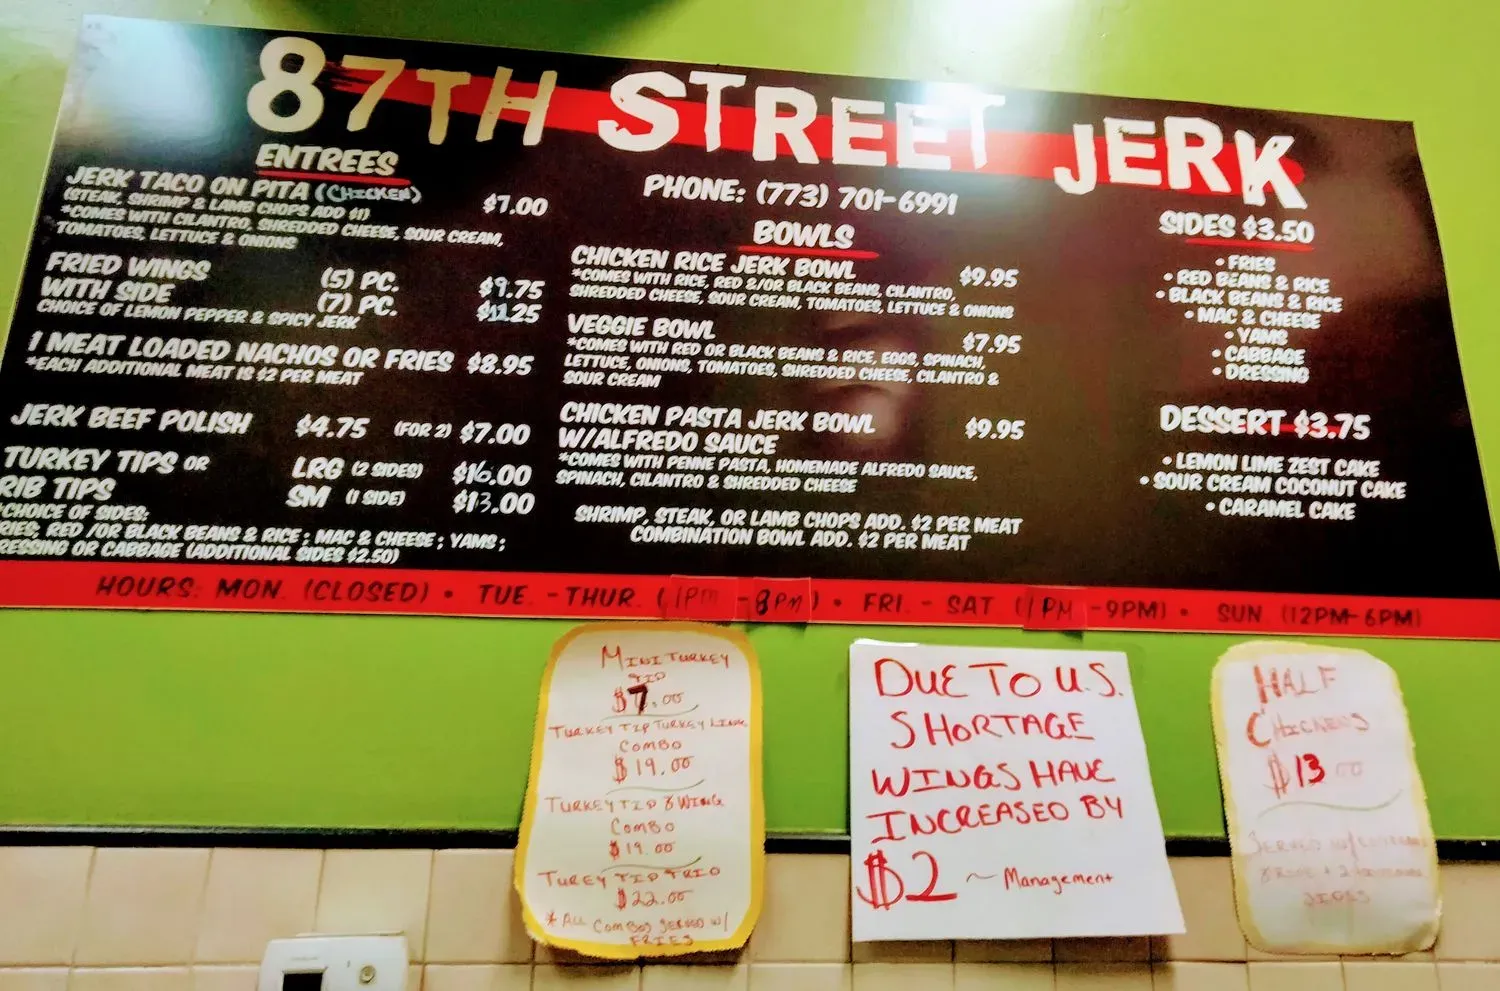 87TH STREET JERK
ENTREES
JERK TACO ON PITA (CHICKEN) $7.00
(STEAK, SHRIMP & LAMB CHOPS ADD $1)
*COMES WITH CILANTRO, SHREDDED CHEESE, SOUR CREAM,
TOMATOES, LETTUCE & ONIONS
FRIED WINGS (5) PC. $9.75
WITH SIDE (7) PC. $11.25
CHOICE OF LEMON PEPPER & SPICY JERK
1 MEAT LOADED NACHOS OR FRIES $8.95
*EACH ADDITIONAL MEAT IS $2 PER MEAT
JERK BEEF POLISH $4.75 (FOR 2) $7.00
TURKEY TIPS OR LRG (2 SIDES) $16.00
RIB TIPS SM (1 SIDE) $13.00
*CHOICE OF SIDES:
RIES; RED /OR BLACK BEANS & RICE; MAC & CHEESE; YAMS;
RESSING OR CABBAGE (ADDITIONAL SIDES $2.50)
PHONE: (773) 701-6991
BOWLS
CHICKEN RICE JERK BOWL $9.95
*COMES WITH RICE, RED &/OR BLACK BEANS, CILANTRO,
SHREDDED CHEESE, SOUR CREAM, TOMATOES, LETTUCE & ONIONS
VEGGIE BOWL $7.95
*COMES WITH RED OR BLACK BEANS & RICE, EGGS, SPINACH,
LETTUCE, ONIONS, TOMATOES, SHREDDED CHEESE, CILANTRO &
SOUR CREAM
CHICKEN PASTA JERK BOWL $9.95
W/ALFREDO SAUCE
*COMES WITH PENNE PASTA, HOMEMADE ALFREDO SAUCE,
SPINACH, CILANTRO & SHREDDED CHEESE
SHRIMP, STEAK, OR LAMB CHOPS ADD. $2 PER MEAT
COMBINATION BOWL ADD. $2 PER MEAT
SIDES $3.50
• FRIES
• RED BEANS & RICE
• BLACK BEANS & RICE
• MAC & CHEESE
• YAMS
• CABBAGE
• DRESSING
DESSERT $3.75
• LEMON LIME ZEST CAKE
• SOUR CREAM COCONUT CAKE
• CARAMEL CAKE
HOURS: MON. (CLOSED) • TUE. - THUR. (1PM - 8PM) • FRI. - SAT (1PM -9PM) • SUN. (12PM-6PM)
MINI TURKEY
TIP
$7.00
TURKEY TIP TURKEY LINK
COMBO
$19.00
TURKEY TIP & WING
COMBO
$19.00
TUREY TIP TRIO
$22.00
*ALL COMBOS SERVED W/
FRIES
DUE TO U.S.
SHORTAGE
WINGS HAVE
INCREASED BY
$2 ~ Management
HALF
CHICKENS
$13.00
SERVED W/
SIDES